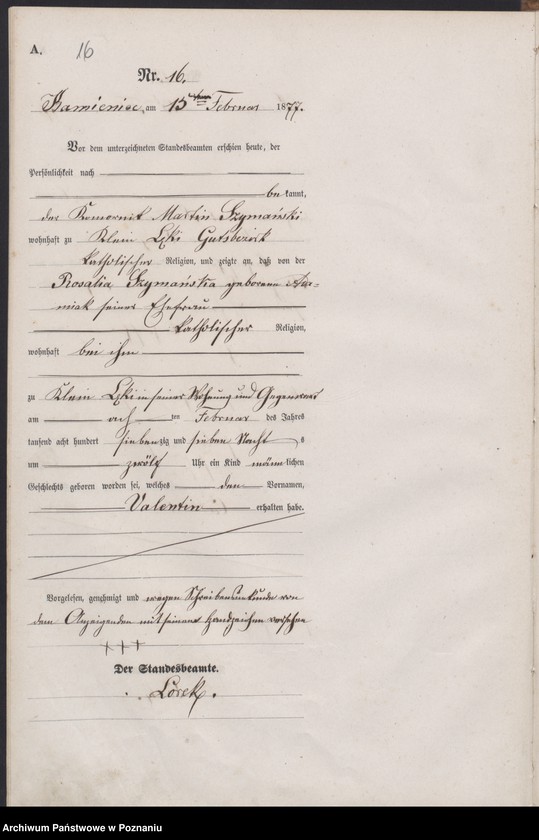 A. 16
Nr. 16.
Kamieniec, am 13ten Februar 1877.
Vor dem unterzeichneten Standesbeamten erschien heute, der
Persönlichkeit nach
bekannt,
der Komornik Martin Szymański
wohnhaft zu Klein Łęki Gutsbezirk
katholischer Religion, und zeigte an, daß von der
Rosalia Szymańska geborene
seiner Ehefrau
katholischer Religion,
wohnhaft bei ihm
zu Klein Łęki in seiner Wohnung und Gegenwart
am acht ten Februar des Jahres
tausend acht hundert siebenzig und sieben Nachts
um zwölf Uhr ein Kind männlichen
Geschlechts geboren worden sei, welches den Vornamen,
Valentin erhalten habe.
Vorgelesen, genehmigt und wegen Schreibensunkunde von
dem Anzeigenden mit seinem Handzeichen versehen
+++
Der Standesbeamte.
Lorek.
Archiwum Państwowe w Poznaniu